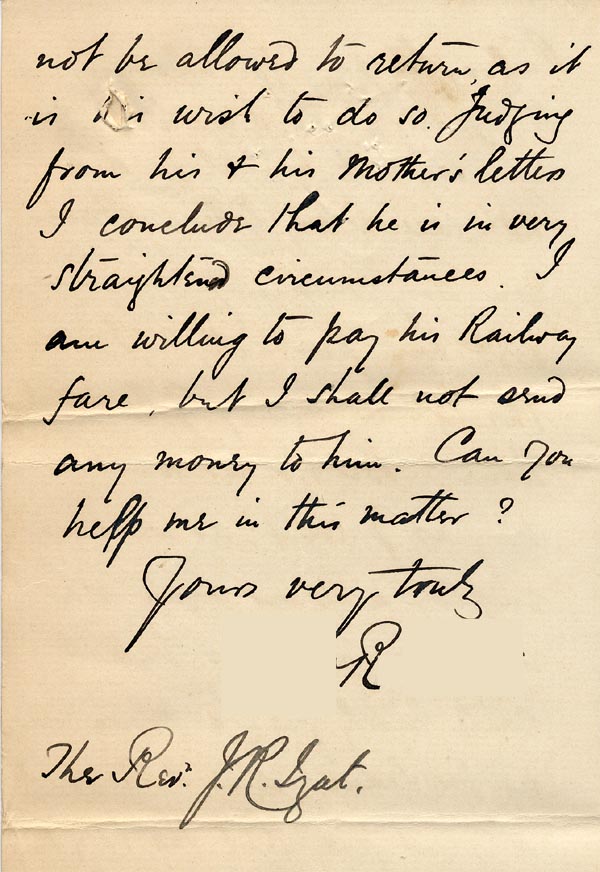 not be allowed to return, as it
is his wish to do so. Judging
from his & his Mother's letters
I conclude that he is in very
straightend circumstances. I
am willing to pay his Railway
fare, but I shall not send
any money to him. Can you
help me in this matter?
Yours very truly
R
The Revd. J. R.